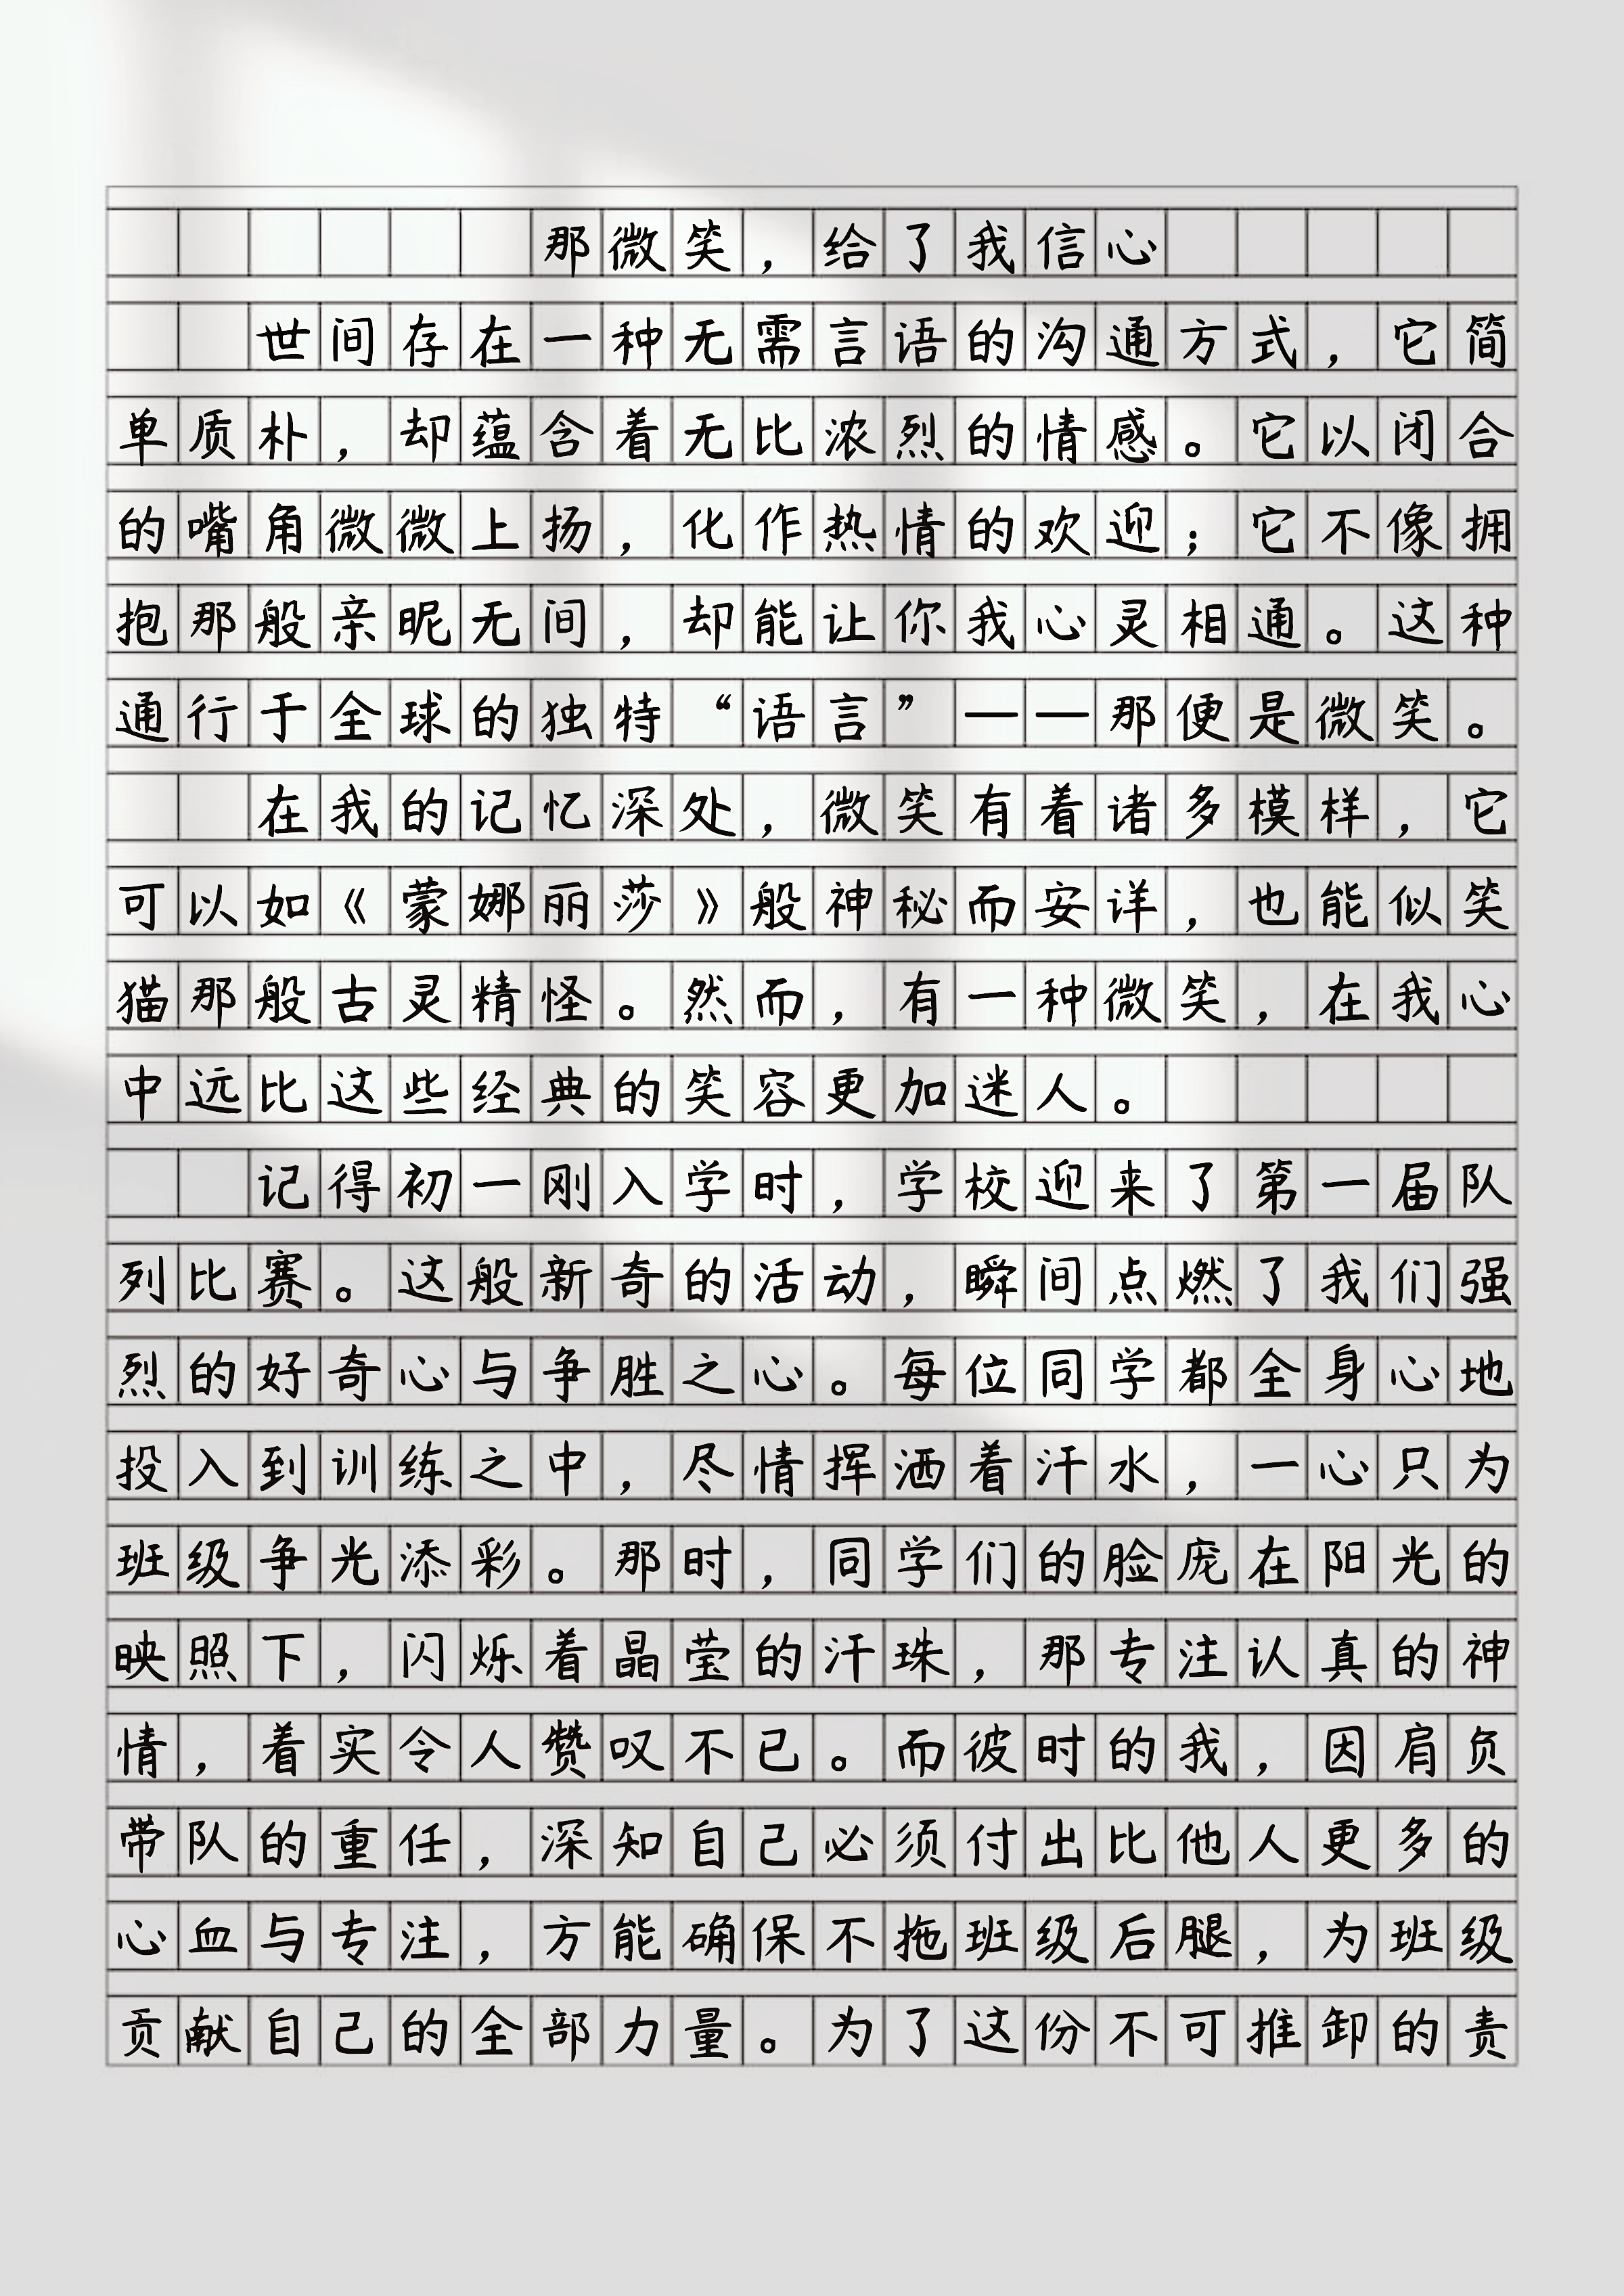 那微笑，给了我信心
世间存在一种无需言语的沟通方式，它简
单质朴，却蕴含着无比浓烈的情感。它以闭合
的嘴角微微上扬，化作热情的欢迎；它不像拥
抱那般亲昵无间，却能让你我心灵相通。这种
通行于全球的独特“语言”——那便是微笑。
在我的记忆深处，微笑有着诸多模样，它
可以如《蒙娜丽莎》般神秘而安详，也能似笑
猫那般古灵精怪。然而，有一种微笑，在我心
中远比这些经典的笑容更加迷人。
记得初一刚入学时，学校迎来了第一届队
列比赛。这般新奇的活动，瞬间点燃了我们强
烈的好奇心与争胜之心。每位同学都全身心地
投入到训练之中，尽情挥洒着汗水，一心只为
班级争光添彩。那时，同学们的脸庞在阳光的
映照下，闪烁着晶莹的汗珠，那专注认真的神
情，着实令人赞叹不已。而彼时的我，因肩负
带队的重任，深知自己必须付出比他人更多的
心血与专注，方能确保不拖班级后腿，为班级
贡献自己的全部力量。为了这份不可推卸的责